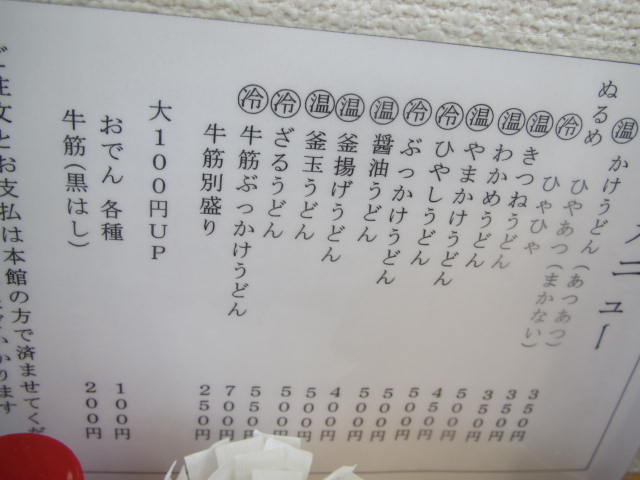 メニュー
温 かけうどん(あつあつ) 350円
ぬるめ ひやあつ(まかない) 350円
冷 ひやひや 350円
温 きつねうどん 500円
温 わかめうどん 450円
温 やまかけうどん 500円
冷 ひやしうどん 500円
冷 ぶっかけうどん 500円
温 醤油うどん 400円
温 釜揚げうどん 500円
温 釜玉うどん 500円
冷 ざるうどん 550円
冷 牛筋ぶっかけうどん 700円
牛筋別盛り 250円
大100円UP
おでん 各種 100円
牛筋(黒はし) 200円
ご注文とお支払は本館の方で済ませてくだ
かります